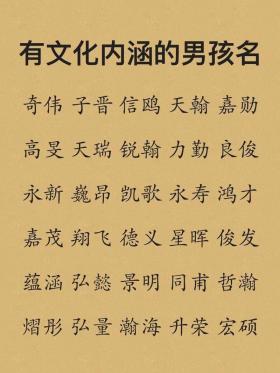 有文化内涵的男孩名
奇伟 子晋 信鸥 天翰 嘉勋
高旻 天瑞 锐翰 力勤 良俊
永新 巍昂 凯歌 永寿 鸿才
嘉茂 翔飞 德义 星晖 俊发
蕴涵 弘懿 景明 同甫 哲瀚
熠彤 弘量 瀚海 升荣 宏硕